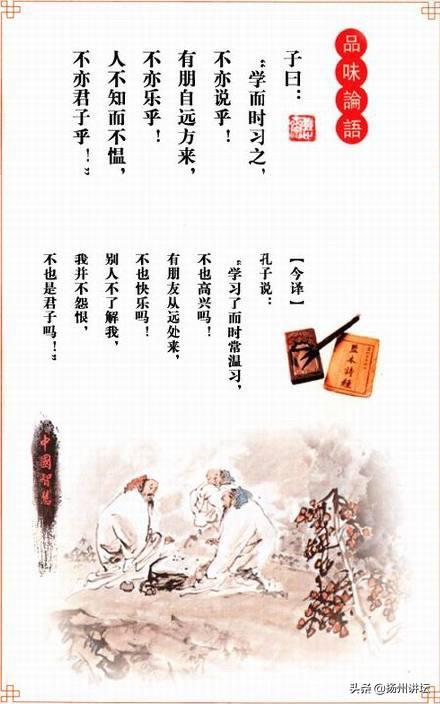 品味論語
子曰：
“学而时习之，
不亦说乎！
有朋自远方来，
不亦乐乎！
人不知而不愠，
不亦君子乎！”
【今译】
孔子说：
“学习了而时常温习，
不也高兴吗！
有朋友从远处来，
不也快乐吗！
别人不了解我，
我并不怨恨，
不也是君子吗！”
监本詩經
中國智慧
头条 @扬州讲坛